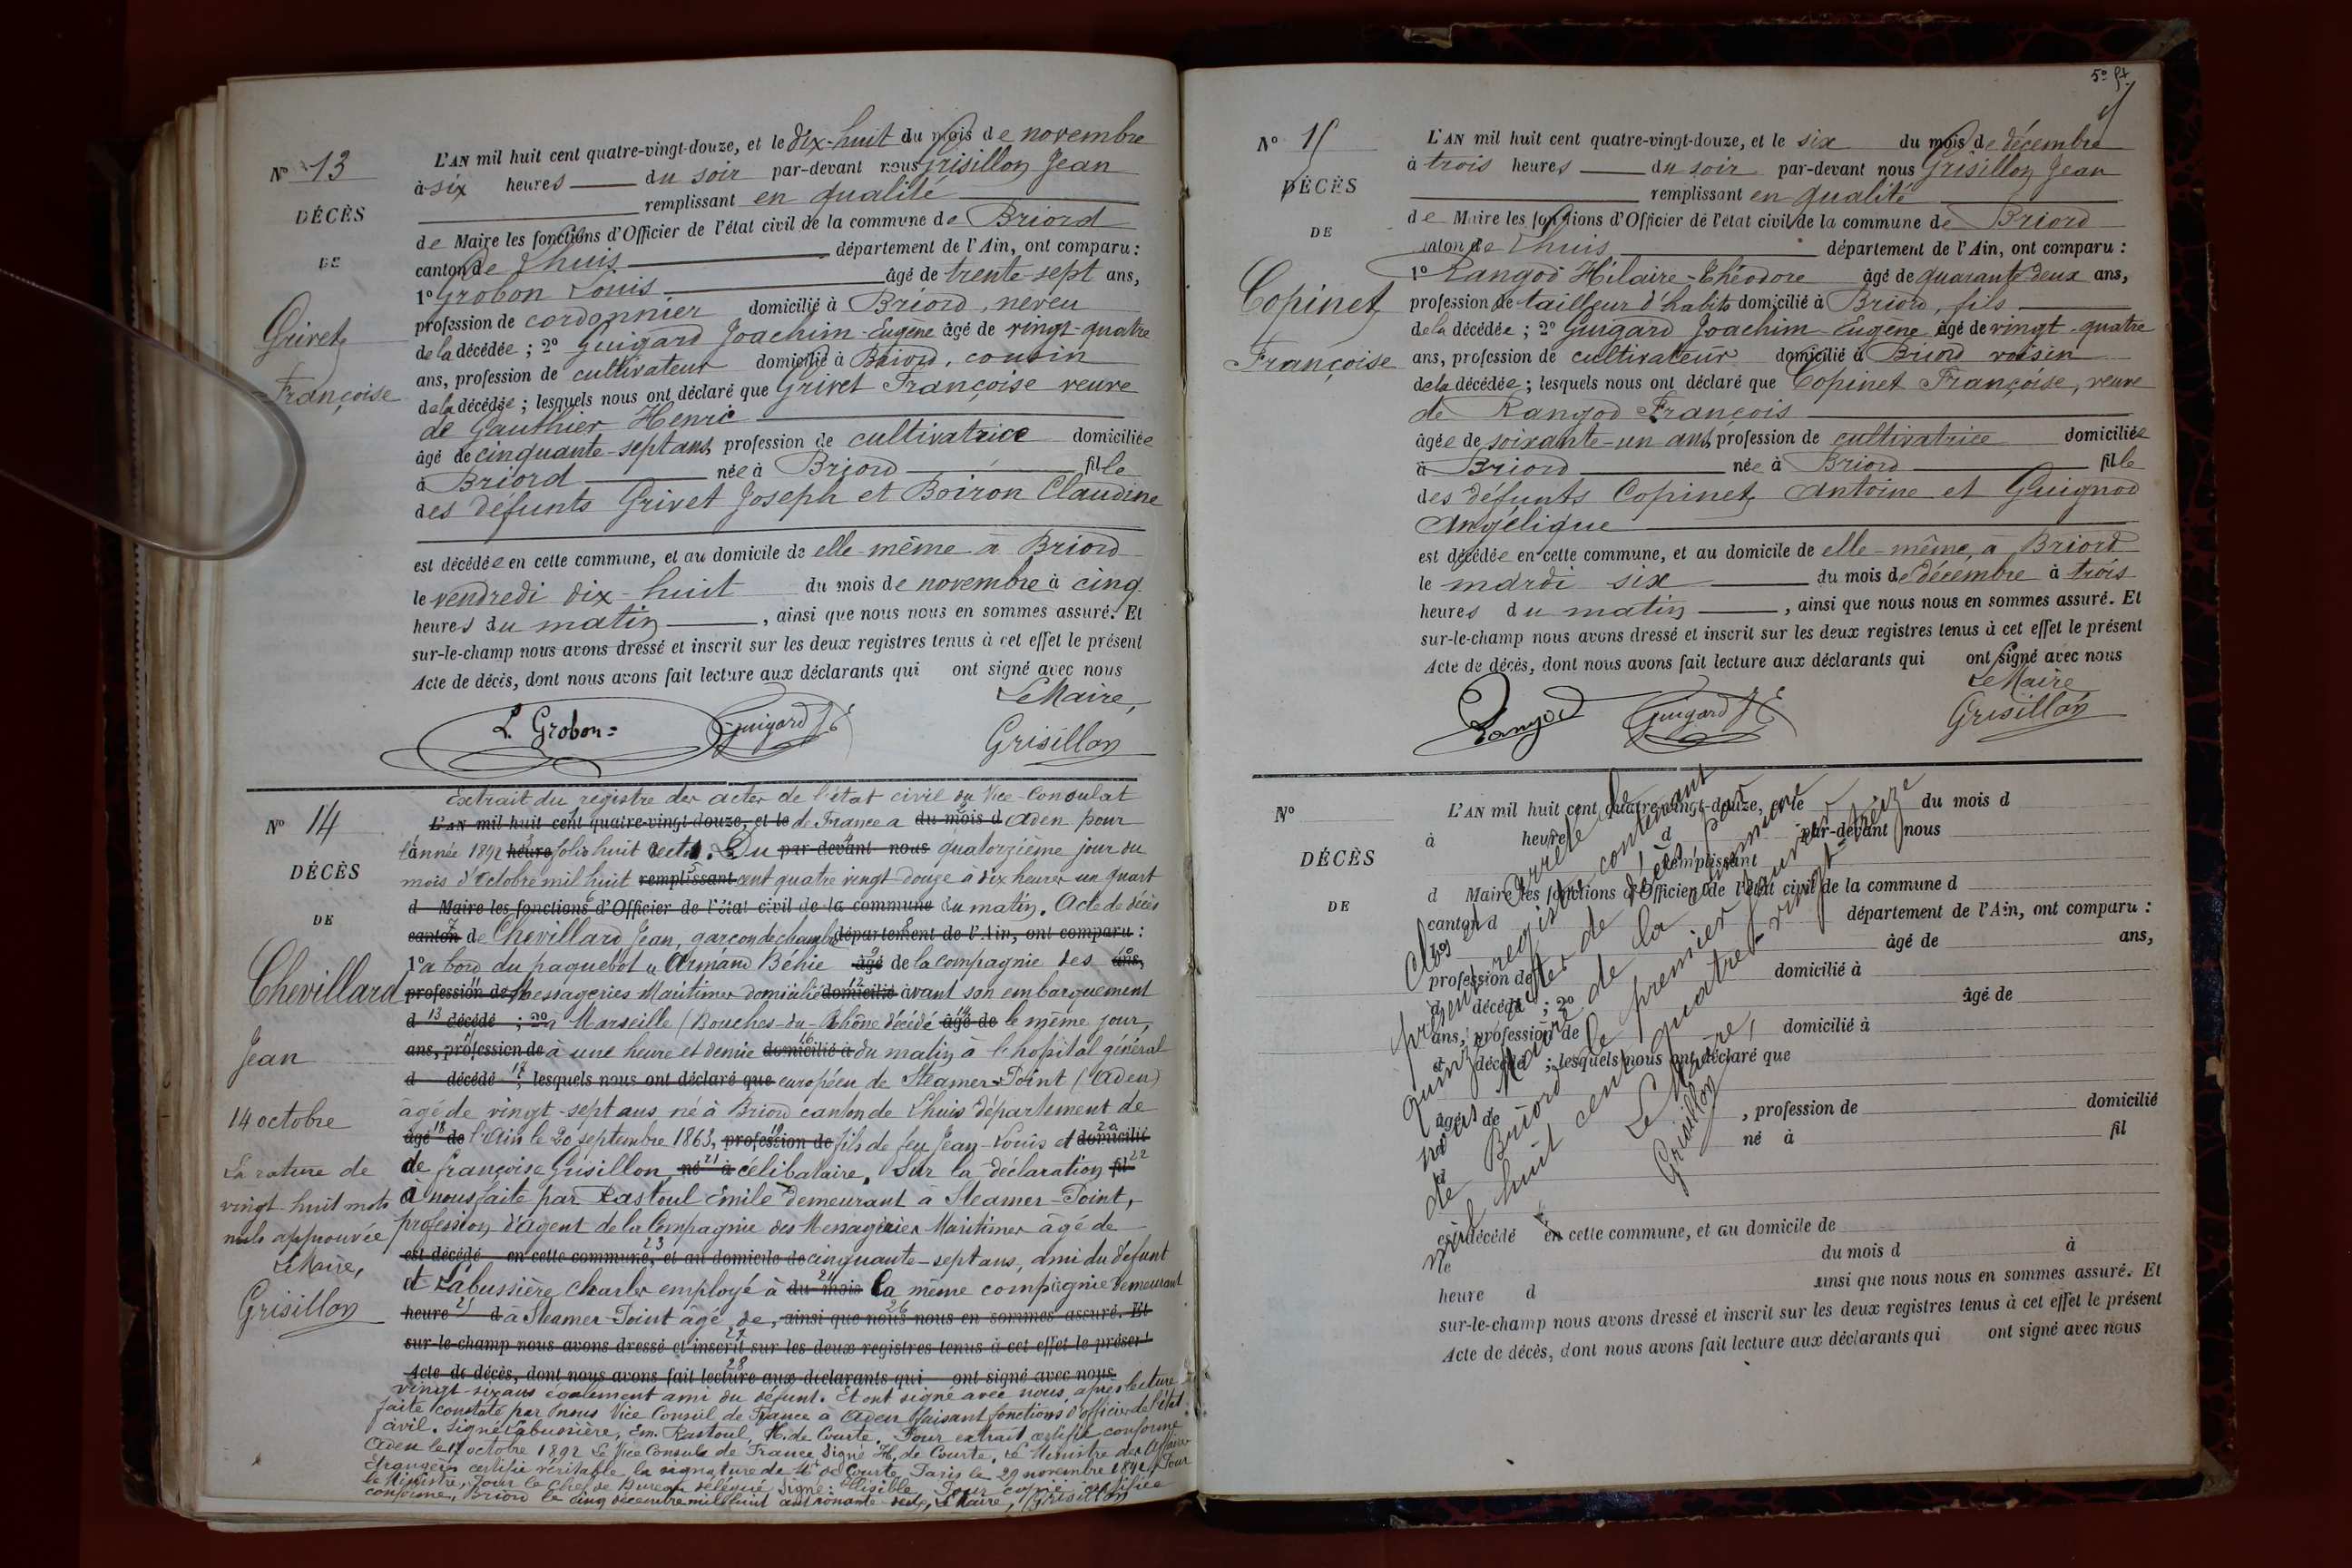 No 13
DÉCÈS
DE
Grivet
Françoise
L'AN mil huit cent quatre-vingt-douze, et le dix-huit du mois de novembre
à six heures du soir par-devant nous Grisillon Jean
remplissant en qualité
de Maire les fonctions d'Officier de l'état civil de la commune de Briord
canton de Lhuis département de l'Ain, ont comparu :
1o Grobon Louis âgé de trente-sept ans,
profession de cordonnier domicilié à Briord, neveu
de la décédée ; 2o Guigard Joachim-Eugène âgé de vingt-quatre
ans, profession de cultivateur domicilié à Briord, cousin
de la décédée ; lesquels nous ont déclaré que Grivet Françoise veuve
de Gauthier Henri
âgé de cinquante-sept ans, profession de cultivatrice domiciliée
à Briord née à Briord fille
des défunts Grivet Joseph et Boiron Claudine
est décédée en cette commune, et au domicile de elle-même à Briord
le vendredi dix-huit du mois de novembre à cinq
heures du matin, ainsi que nous nous en sommes assuré. Et
sur-le-champ nous avons dressé et inscrit sur les deux registres tenus à cet effet le présent
Acte de décès, dont nous avons fait lecture aux déclarants qui ont signé avec nous
Le Maire,
L. Grobon Guigard J E
Grisillon
No 14
DÉCÈS
DE
Chevillard
Jean
14 octobre
La rature de
vingt-huit mots
nuls approuvée
Le Maire,
Grisillon
Extrait du registre des actes de l'état civil du Vice-Consulat
L'AN mil huit cent quatre-vingt-douze, et le de France a du mois d Aden pour
l'année 1892 heure folio huit recto. Du par-devant nous quatorzième jour du
mois d'octobre mil huit remplissant cent quatre vingt-douze à dix heures un quart
d Maire les fonctions d'Officier de l'état civil de la commune du matin. Acte de décès
canton de Chevillard Jean, garçon de chambre département de l'Ain, ont comparu :
1o a bord du paquebot "Armand Béhic âgé de la compagnie des ans,
profession de Messageries Maritimes domicilié domicilié avant son embarquement
d 13 décédé ; 2o à Marseille (Bouches-du-Rhône décédé âgé de le même jour,
ans, profession de à une heure et demie domicilié à du matin à l'hopital général
d décédé 17, lesquels nous ont déclaré que européen de Steamer-Point (Aden)
âgé de vingt-sept ans né à Briord canton de Lhuis département de
âgé 18 de l'Ain le 20 septembre 1863, profession de fils de feu Jean-Louis et domicilié
de françoise Grisillon, né 21 à célibataire. Sur la déclaration fil 22
à nous faite par Rastoul Emile demeurant à Steamer-Point,
profession d'agent de la Compagnie des Messageries Maritimes âgé de
est décédé en cette commune, 23 et au domicile de cinquante-sept ans, ami du défunt
et Labussière Charles employé à du 24 mois la même compagnie demeurant
heure 25 d à Steamer-Point âgé de, ainsi que nous 26 nous en sommes assuré. Et
sur-le-champ nous avons dressé et inscrit 27 sur les deux registres tenus à cet effet le présent
Acte de décès, dont nous avons fait lecture 28 aux déclarants qui ont signé avec nous
vingt-six ans également ami du défunt. Et ont signé avec nous, après lecture
faite constaté par nous Vice Consul de France à Aden faisant fonctions d'officier de l'état
civil. Signé Labussière, Em. Rastoul, H. de Courte. Pour extrait certifié conforme
Aden le 17 octobre 1892 Le Vice Consule de France Signé H. de Courte. Le Ministre des Affaires
Etrangères certifie véritable la signature de Mr de Courte Paris le 29 novembre 1892 Pour
le Ministre, Pour le Chef de Bureau délégué, Signé : Illisible Pour copie certifiée
conforme, Briord le cinq décembre mil huit cent nonante deux, Le Maire, Grisillon
No 15
DÉCÈS
DE
Copinet
Françoise
5e ft
L'AN mil huit cent quatre-vingt-douze, et le six du mois de décembre
à trois heures du soir par-devant nous Grisillon Jean
remplissant en qualité
de Maire les fonctions d'Officier de l'état civil de la commune de Briord
canton de Lhuis département de l'Ain, ont comparu :
1o Rangod Hilaire-Théodore âgé de quarante-deux ans,
profession de tailleur d'habits domicilié à Briord, fils
de la décédée ; 2o Guigard Joachim Eugène âgé de vingt-quatre
ans, profession de cultivateur domicilié à Briord voisin
de la décédée ; lesquels nous ont déclaré que Copinet Françoise, veuve
de Rangod François
âgée de soixante-un ans, profession de cultivatrice domiciliée
à Briord née à Briord fille
des défunts Copinet Antoine et Guignod
Angélique
est décédée en cette commune, et au domicile de elle-même, à Briord
le mardi six du mois de décembre à trois
heures du matin, ainsi que nous nous en sommes assuré. Et
sur-le-champ nous avons dressé et inscrit sur les deux registres tenus à cet effet le présent
Acte de décès, dont nous avons fait lecture aux déclarants qui ont signé avec nous
Le Maire
Rangod Guigard J E
Grisillon
No
DÉCÈS
DE
L'AN mil huit cent quatre-vingt-douze, et le du mois d
à heure d par-devant nous
remplissant
d Maire les fonctions d'Officier de l'état civil de la commune d
canton d département de l'Ain, ont comparu :
1o âgé de ans,
profession de domicilié à
d décédé ; 2o âgé de
ans, profession de domicilié à
d décédé ; lesquels nous ont déclaré que
âgé de , profession de domicilié
né à fil
est décédé en cette commune, et au domicile de
le du mois d à
heure d ainsi que nous nous en sommes assuré. Et
sur-le-champ nous avons dressé et inscrit sur les deux registres tenus à cet effet le présent
Acte de décès, dont nous avons fait lecture aux déclarants qui ont signé avec nous
Clos et arrêté le
présent registre contenant
quinze actes de décès par
nous Maire de la commune
de Briord le premier janvier
mil huit cent quatre-vingt-treize
Le Maire,
Grisillon